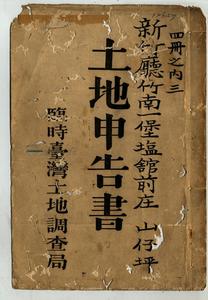 四冊之内三
新竹廳竹南一堡塩館前庄 山仔坪
土地申告書
臨時臺灣土地調查局